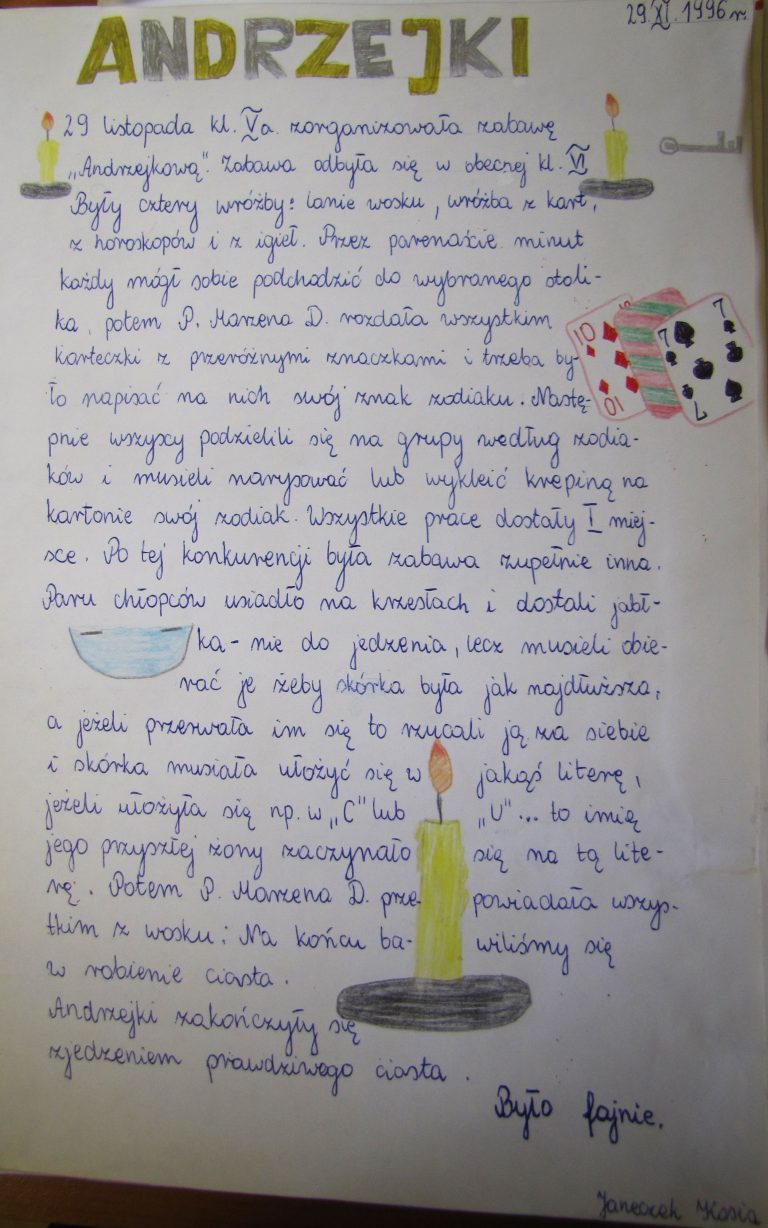 29 XI. 1996 r.
ANDRZEJKI
29 listopada kl. Va. zorganizowała zabawę
„Andrzejkową". Zabawa odbyła się w obecnej kl. VI
Były cztery wróżby: lanie wosku, wróżba z kart,
z horoskopów i z igieł. Przez parenaście minut
każdy mógł sobie podchodzić do wybranego stoli-
ka, potem P. Marzena D. rozdała wszystkim
karteczki z przeróżnymi znaczkami i trzeba by-
ło napisać na nich swój znak zodiaku. Nastę-
pnie wszyscy podzielili się na grupy według zodia-
ków i musieli narysować lub wykleić krepiną na
kartonie swój zodiak. Wszystkie prace dostały I miej-
sce. Po tej konkurencji była zabawa zupełnie inna.
Paru chłopców usiadło na krzesłach i dostali jabł-
ka - nie do jedzenia, lecz musieli obie-
rać je żeby skórka była jak najdłuższa,
a jeżeli przerwała im się to rzucali ją za siebie
i skórka musiała ułożyć się w jakąś literę,
jeżeli ułożyła się np. w „C" lub „U"... to imię
jego przyszłej żony zaczynało się na tą lite-
rę. Potem P. Marzena D. prze powiadała wszys-
tkim z wosku: Na końcu ba- wiliśmy się
w robienie ciasta.
Andrzejki zakończyły się
zjedzeniem prawdziwego ciasta.
Było fajnie.
Janeczek Kasia
10
10
7
7
7